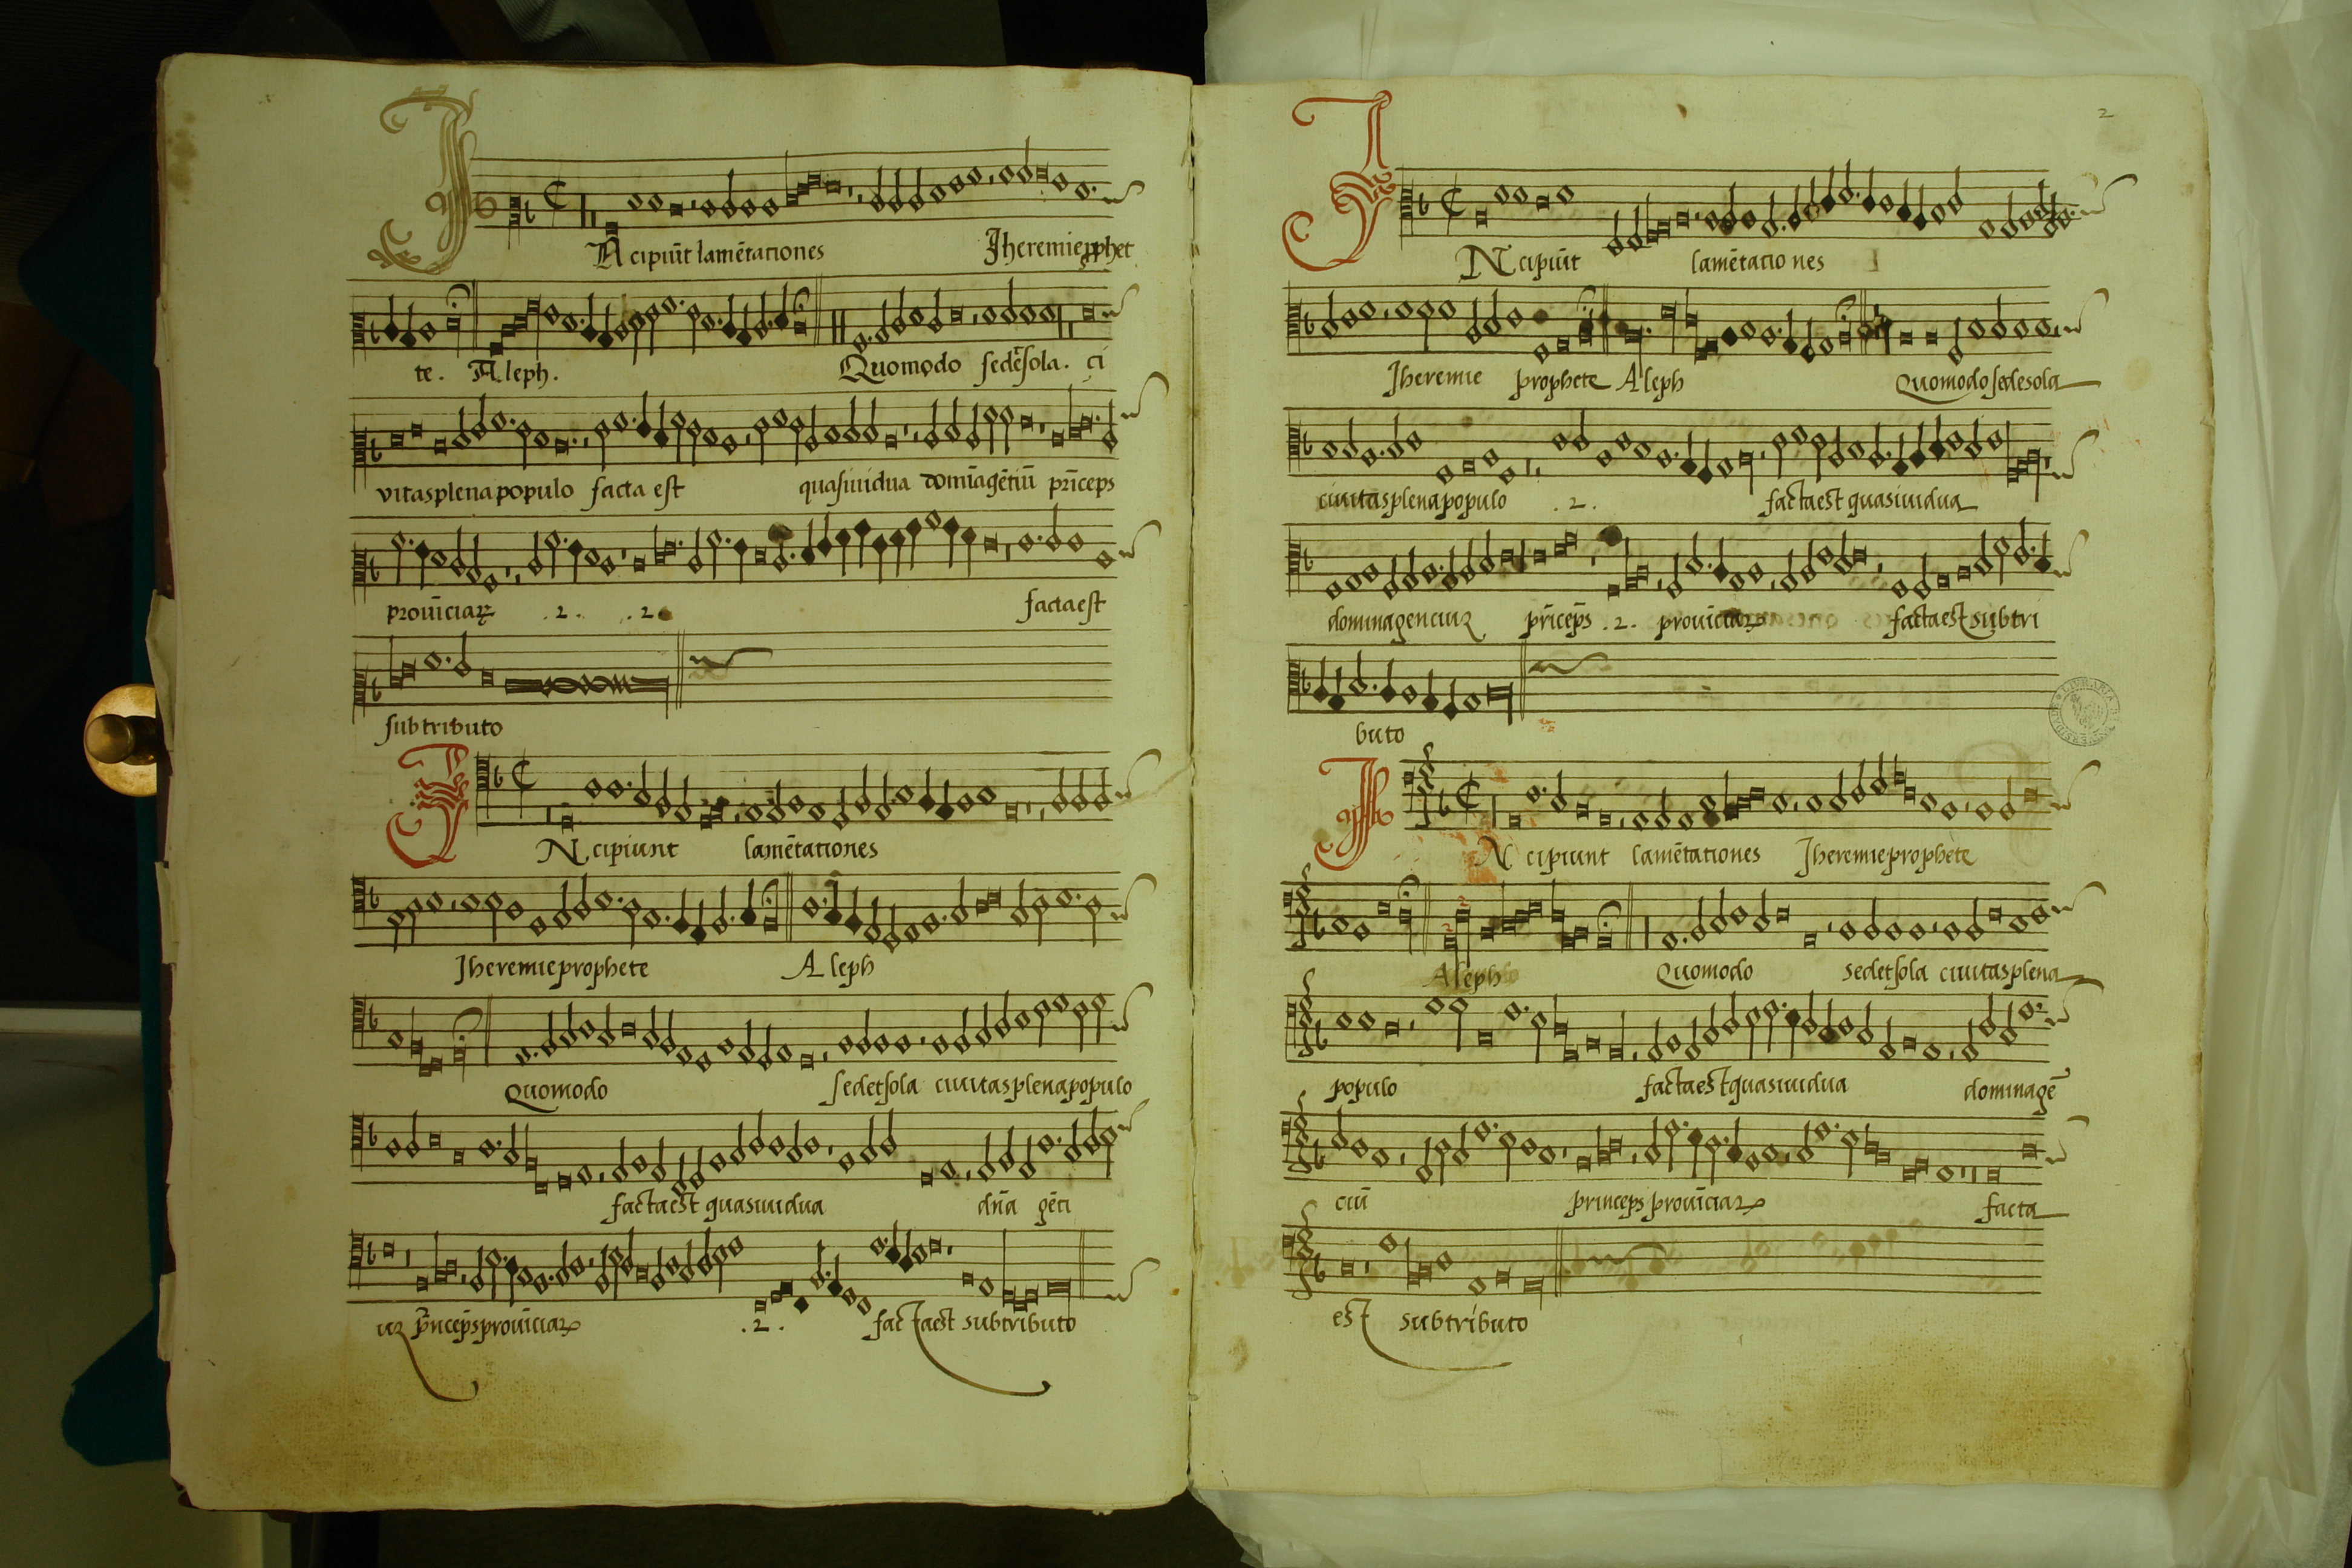 IN cipiūt lamētationes Jheremie pphet
te. Aleph. Quomodo sedēsola. ci
vitas plena populo facta est quasi uidua domīa gētiū prīceps
prouīciaꝝ .2. .2. facta est
sub tributo
IN cipiunt lamētationes
Jheremie prophete Aleph
Quomodo sedet sola ciuitas plena populo
facta est quasi uidua dn̄a gēti
uꝝ p̄nceps prouīciaꝝ .2. facta est sub tributo
2
IN cipiūt lamētationes
Jheremie prophete Aleph Quomodo sede sola
ciuitas plena populo .2. facta est quasi uidua
domina genciuꝝ prīceps .2. prouīciaꝝ facta est sub tri
buto
IN cipiunt lamētationes Jheremie prophete
Aleph Quomodo sedet sola ciuitas plena
populo facta est quasi uidua domina gē
ciū princeps prouīciaꝝ facta
est sub tributo